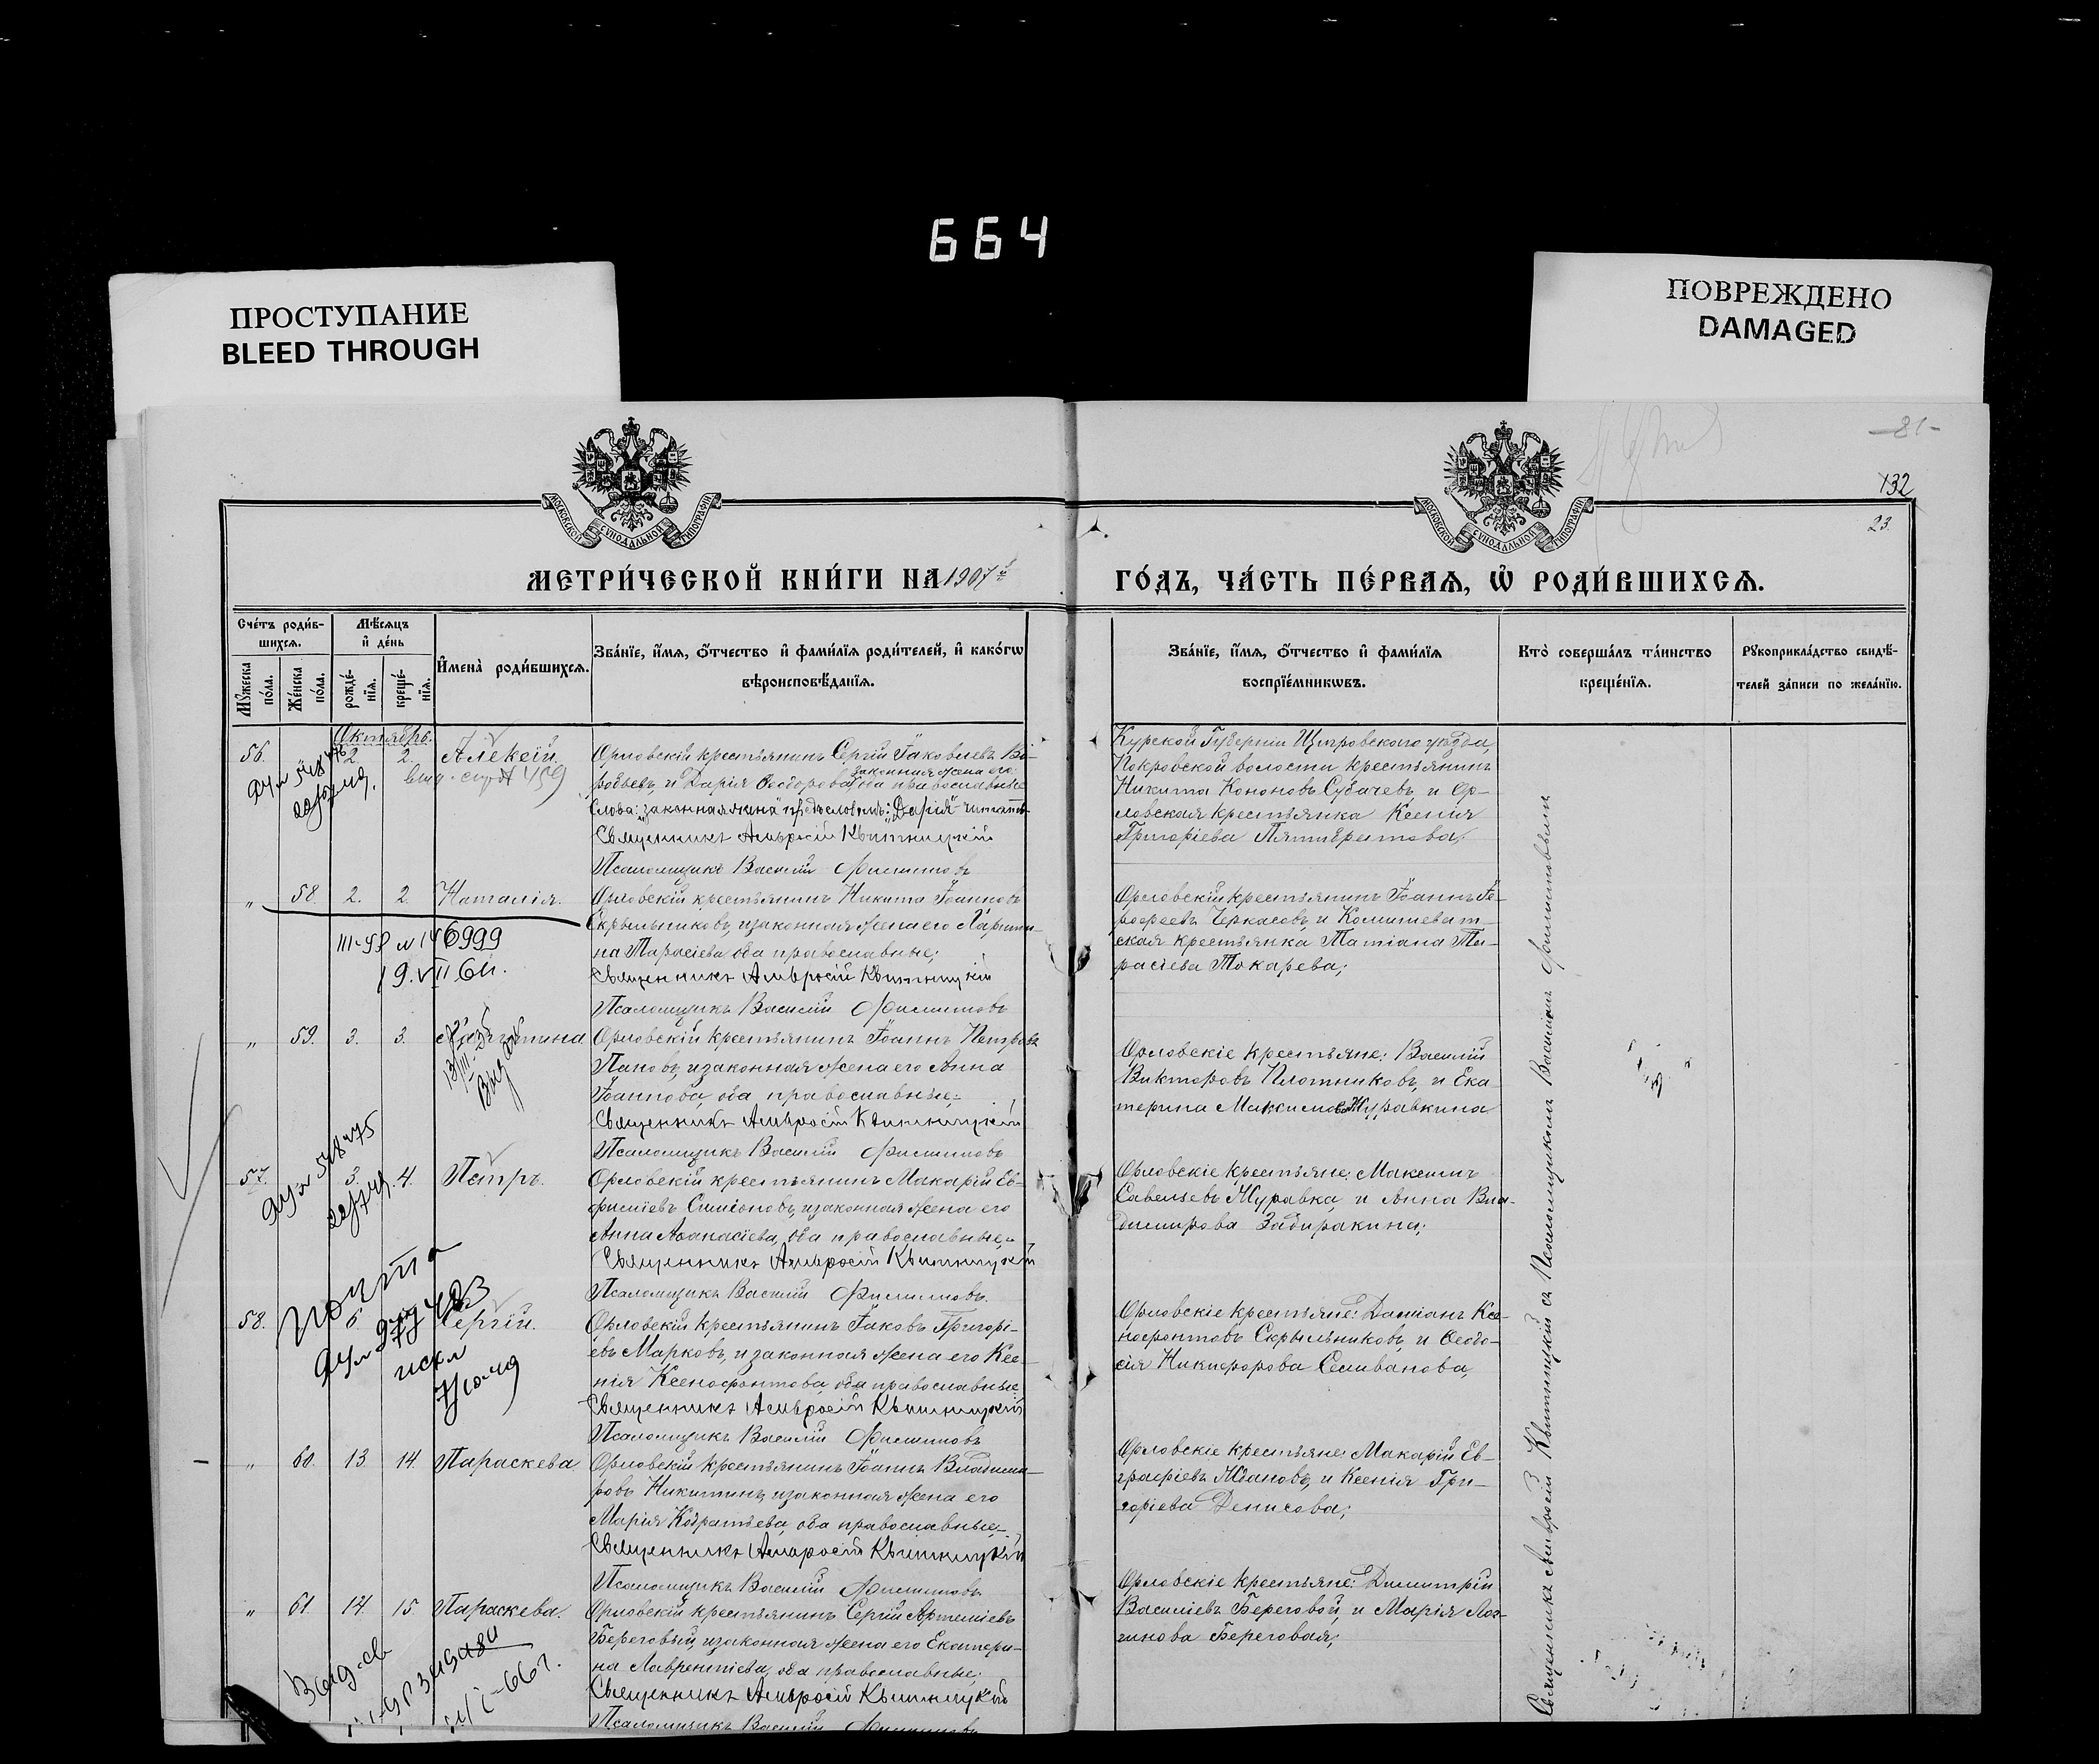 664
ПРОСТУПАНИЕ
BLEED THROUGH
ПОВРЕЖДЕНО
DAMAGED
-81-
132
23.
МОСКОВСКОЙ СѴНОДАЛЬНОЙ ТИПОГРАФІИ
МОСКОВСКОЙ СѴНОДАЛЬНОЙ ТИПОГРАФІИ
МЕТРИ́ЧЕСКОЙ КНИ́ГИ НА 1907 й
ГО́ДЪ, ЧА́СТЬ ПЕ́РВАѦ, Ѡ҆ РОДИ́ВШИХСѦ.
Сче́тъ роди́в-
шихсѧ.
Мꙋ́жеска по́ла.
Же́нска по́ла.
Мѣ́сѧцъ
и҆ де́нь
рожде́-нїѧ.
креще́-нїѧ.
И҆мена̀ роди́вшихсѧ.
Зва́нїе, и҆́мѧ, ѻ҆́тчество и҆ фами́лїѧ роди́телей, и҆ како́гѡ
вѣроисповѣ́данїѧ.
Зва́нїе, и҆́мѧ, ѻ҆́тчество и҆ фами́лїѧ
воспрїе́мникѡвъ.
Кто̀ соверша́лъ та́инство
креще́нїѧ.
Рꙋкоприкла́дство свидѣ́-
телей за́писи по жела́нїю.
Октябрь.
56. 2. 2. Алексій.
Орловскій крестьянинъ Сергій Іаковлевъ
законная жена его
и Дарія Ѳеодорова, оба православные
Слова: „законная жена" предъ словомъ: „Дарія" читать
Священникъ Амвросій Квитницкій
Псаломщикъ Василій Филиповъ
Курской Губерніи Щигровского уѣзда,
Покровской волости крестьянинъ
Никита Кононовъ Субачевъ и Ор-
ловская крестьянка Ксенія
Григоріева
„ 58. 2. 2. Наталія.
Орловскій крестьянинъ Никита Іоанновъ
Скрыльниковъ, и законная жена его Харити-
на Тарасіева, оба православные;
Священникъ Амвросій Квитницкій
Псаломщикъ Василій Филиповъ
6999
Орловскій крестьянинъ Іоаннъ
Черкасовъ, и
ская крестьянка Татіана Та-
расіева Токарева;
„ 59. 3. 3.
Орловскій крестьянинъ Іоаннъ Петровъ
Пановъ, и законная жена его Анна
Іоаннова, оба православные;
Священникъ Амвросій Квитницкій
Псаломщикъ Василій Филиповъ
Орловскіе крестьяне: Василій
Викторовъ Плотниковъ, и Ека-
терина Максимова Журавкина
57. 3. 4. Петръ.
Орловскій крестьянинъ Макарій Ев-
фиміевъ Симоновъ, и законная жена его
Анна Аѳанасіева, оба православные;
Священникъ Амвросій Квитницкій
Псаломщикъ Василій Филиповъ.
Орловскіе крестьяне: Максимъ
Савельевъ Журавка, и Анна Вла-
димирова Задиракина;
58. Сергій.
Орловскій крестьянинъ Іаковъ Григорі-
евъ Марковъ, и законная жена его Ксе-
нія Ксенофонтова, оба православные
Священникъ Амвросій Квитницкій
Псаломщикъ Василій Филиповъ
Орловскіе крестьяне: Даміанъ Ксе-
нофонтовъ Скрыльниковъ, и Ѳеодо-
сія Никифорова Селиванова,
„ 60. 13 14. Параскева
Орловскій крестьянинъ Іоаннъ Владими-
ровъ Никитинъ, и законная жена его
Марія Кодратьева, оба православные;
Священникъ Амвросій Квитницкій
Псаломщикъ Василій Филиповъ
Орловскіе крестьяне: Макарій Ев-
графіевъ Ждановъ, и Ксенія Гри-
горіева Денисова;
„ 61. 14. 15 Параскева.
Орловскій крестьянинъ Сергій Артеміевъ
Береговый, и законная жена его Екатери-
на Лаврентіева, оба православные;
Священникъ Амвросій Квитницкій
Псаломщикъ Василій Филиповъ
Орловскіе крестьяне: Димитрій
Василіевъ Береговой, и Марія Лог-
гинова Береговая;
Священникъ Амвросій Квитницкій съ Псаломщикомъ Василіемъ Филиповымъ